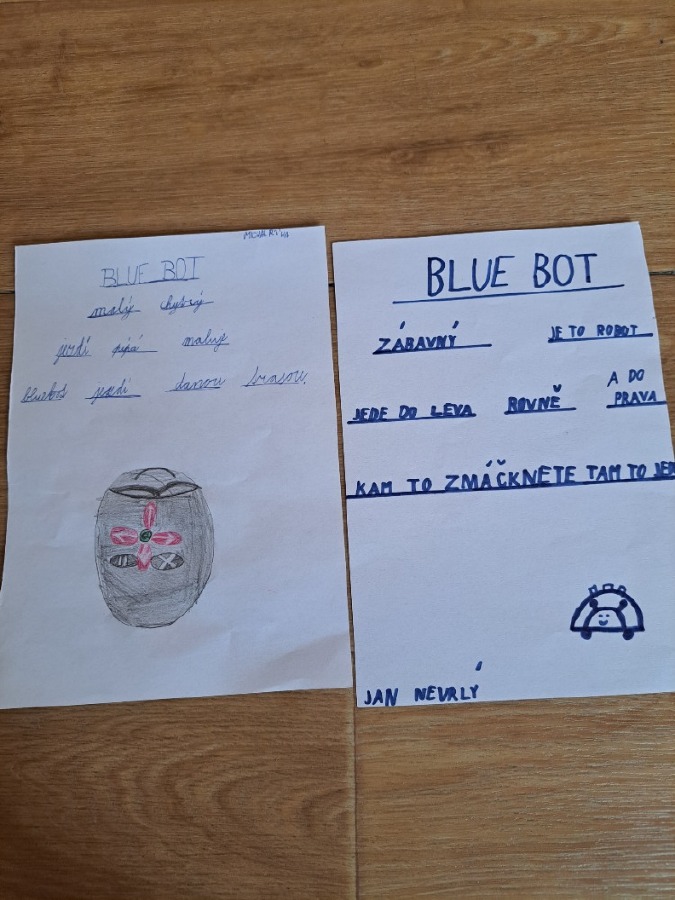 BLUE BOT
malý chytrý
jezdí pípá maluje
bluebot jezdí danou trasou.
BLUE BOT
ZÁBAVNÝ JE TO ROBOT
JEDE DO LEVA ROVNĚ A DO PRAVA
KAM TO ZMÁČKNETE TAM TO JEDE
JAN NEVRLÝ